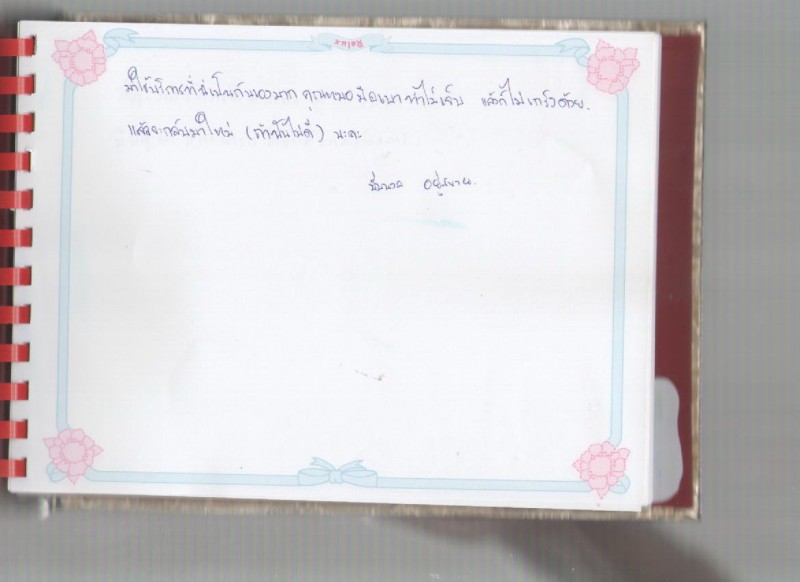 Relux
มาใช้บริการที่นี่เป็นกันเองมาก คุณหมอมือเบาทำไม่เจ็บ แล้วก็ไม่เกร็งด้วย.
แล้วจะกลับมาใหม่ (ถ้าฟันไม่ดี) นะคะ